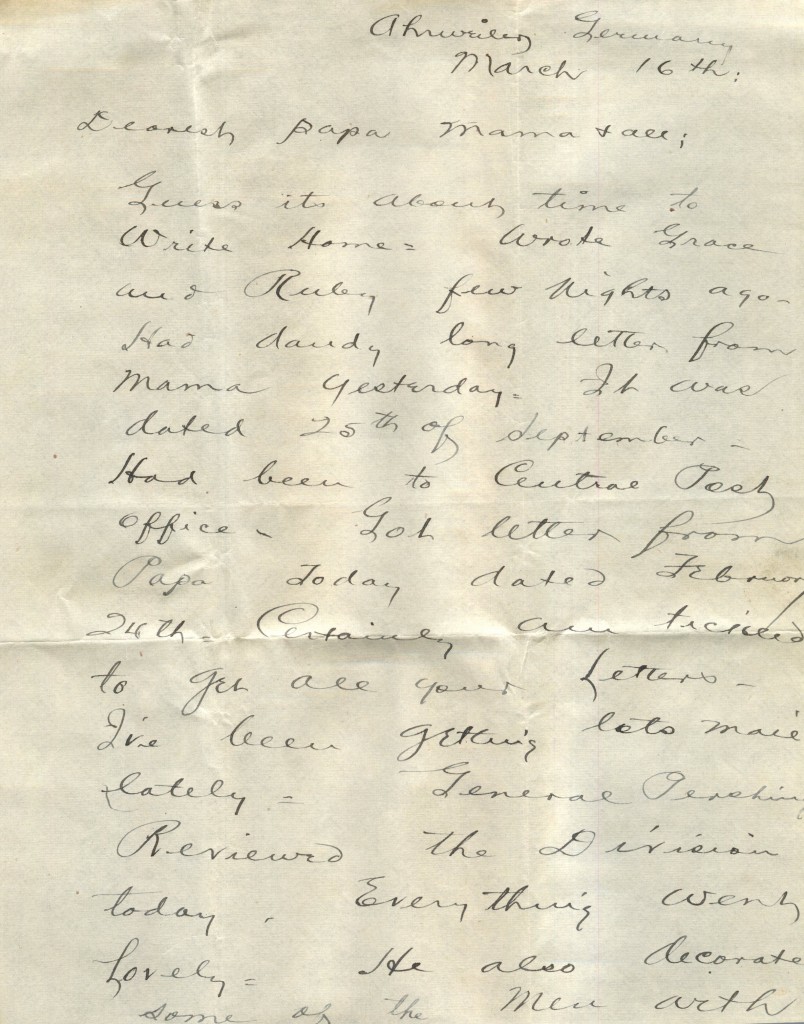 Ahrweiler, Germany
March 16th:
Dearest papa mama & all;
Guess its about time to
Write Home = Wrote Grace
and Ruby few Nights ago -
Had dandy long letter from
Mama yesterday = It was
dated 25th of September -
Had been to Central Post
Office - Got letter from
Papa Today dated February
24th = Certainly am tickled
to get all your Letters -
I've been getting lots mail
lately = General Pershing
Reviewed the Division
today. Everything went
Lovely = He also decorate
some of the Men with